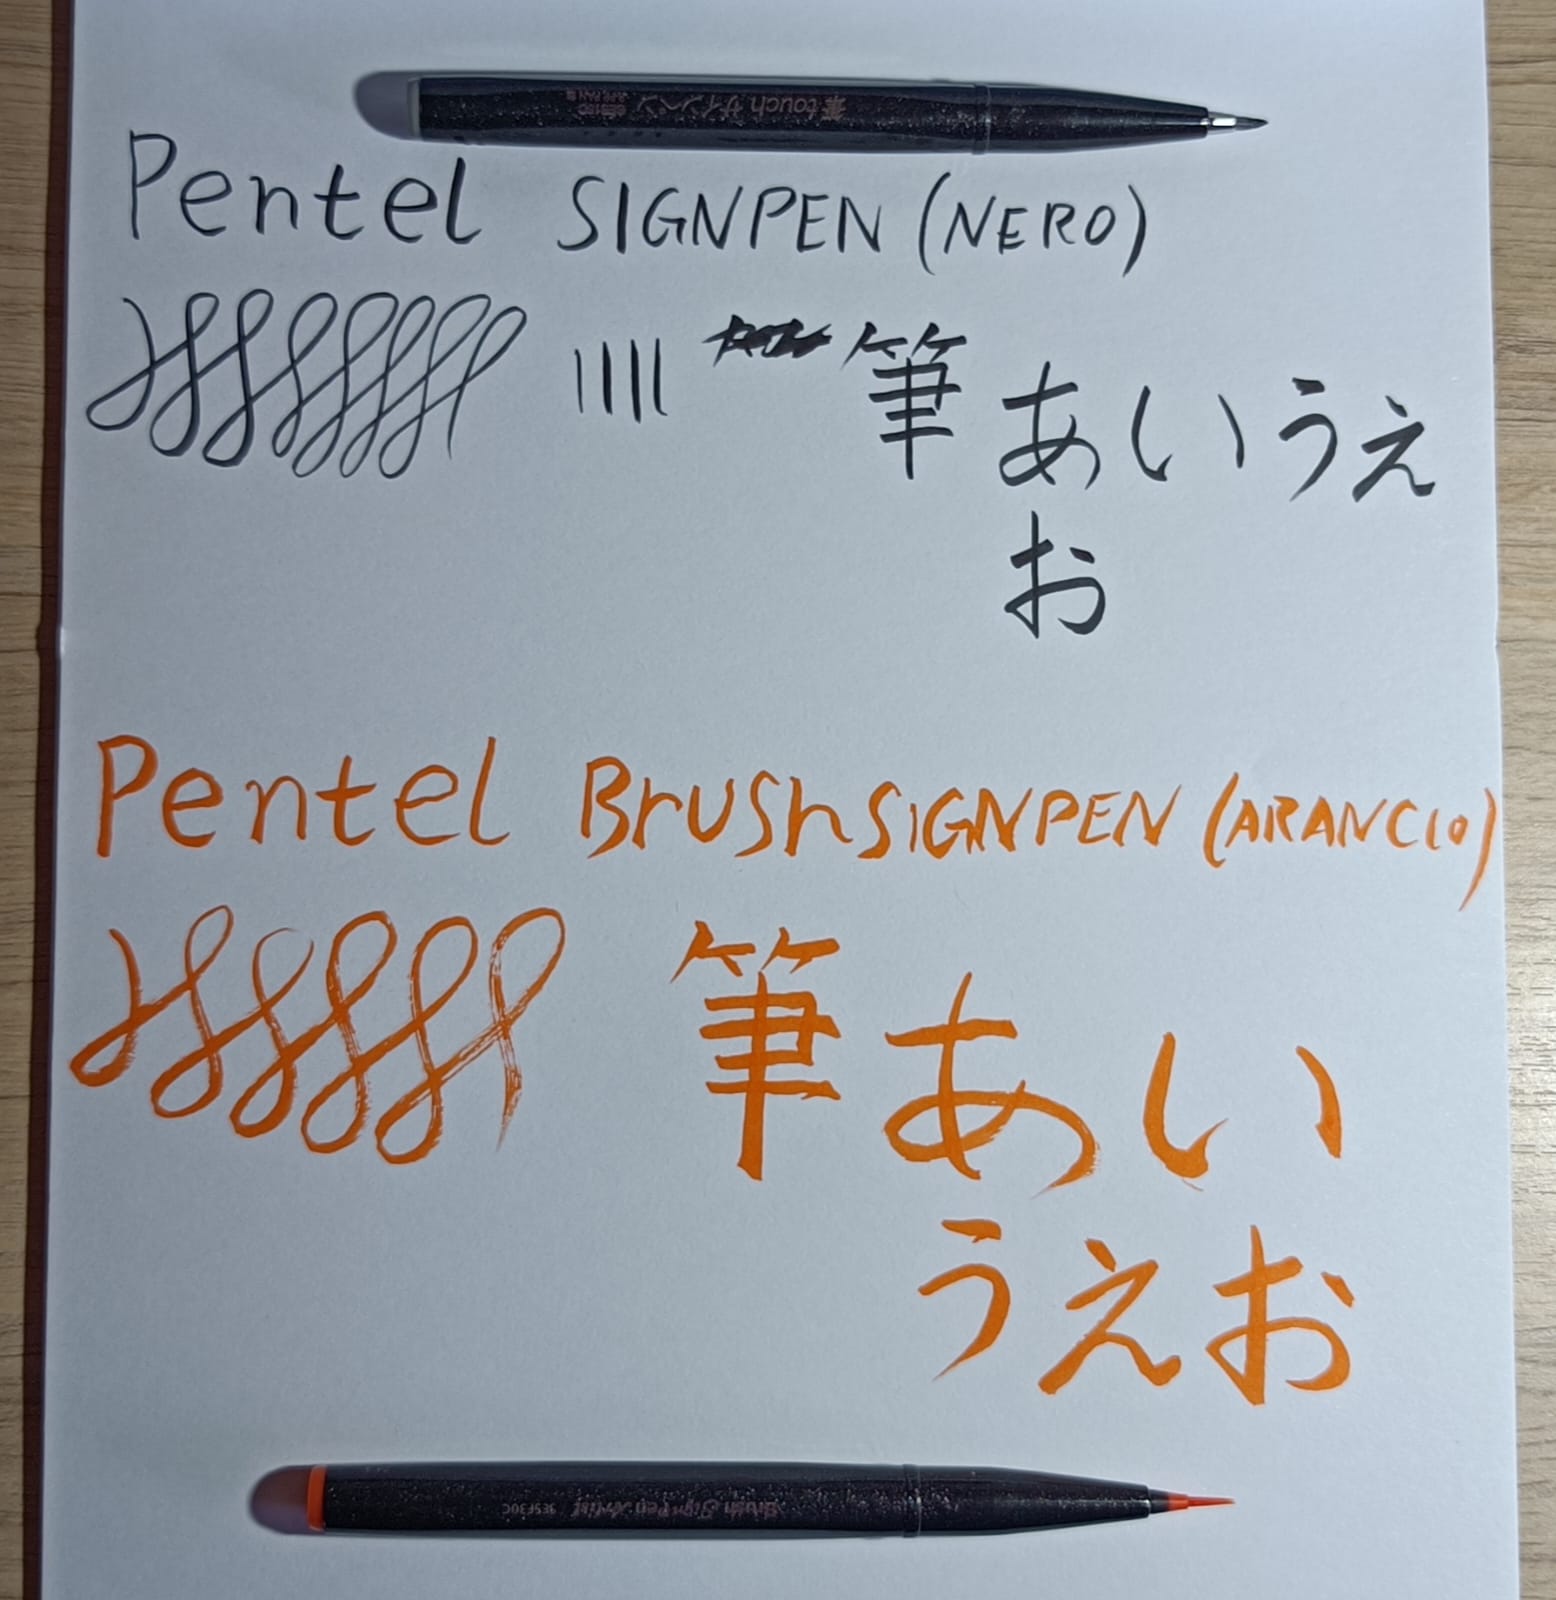 筆touch サインペン
Pentel SIGNPEN (NERO)
筆あいうえ
お
Pentel BrushSIGNPEN (ARANCIO)
筆あい
うえお
Brush Sign Pen Artist